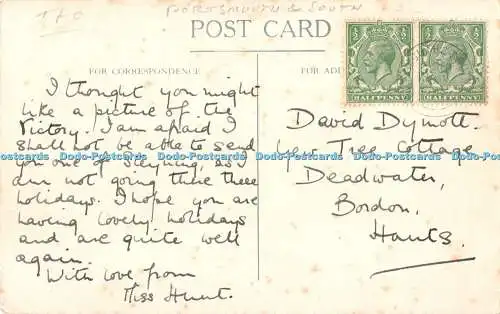 1/6
PORTSMOUTH & SOUTH
POST CARD
FOR CORRESPONDENCE
I thought you might
like a picture of the
Victory. I am afraid I
shall not be able to send
you one of Steyning, as I
am not going there these
holidays. I hope you are
having lovely holidays
and are quite well
again.
With love from
Miss Hunt.
HALFPENNY
HALFPENNY
David Dymott.
Yew Tree Cottage
Deadwater,
Bordon,
Hants.
Postcards Dodo-Postcards Dodo-Postcards Dodo-Postcards Dodo-Postcards Dodo-Postcards